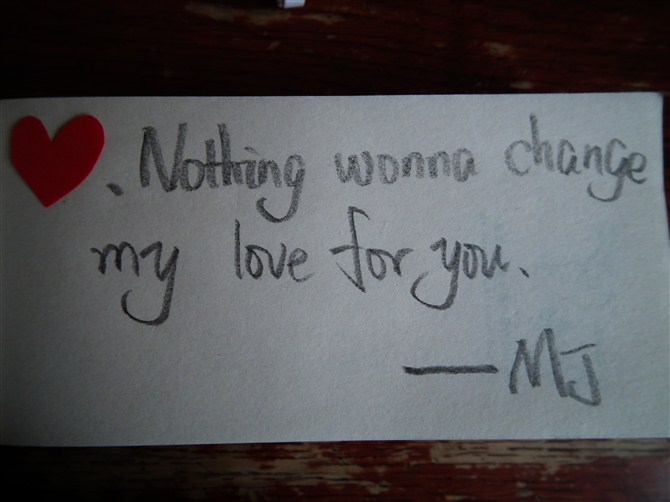 . Nothing wonna change
my love for you.
— MJ